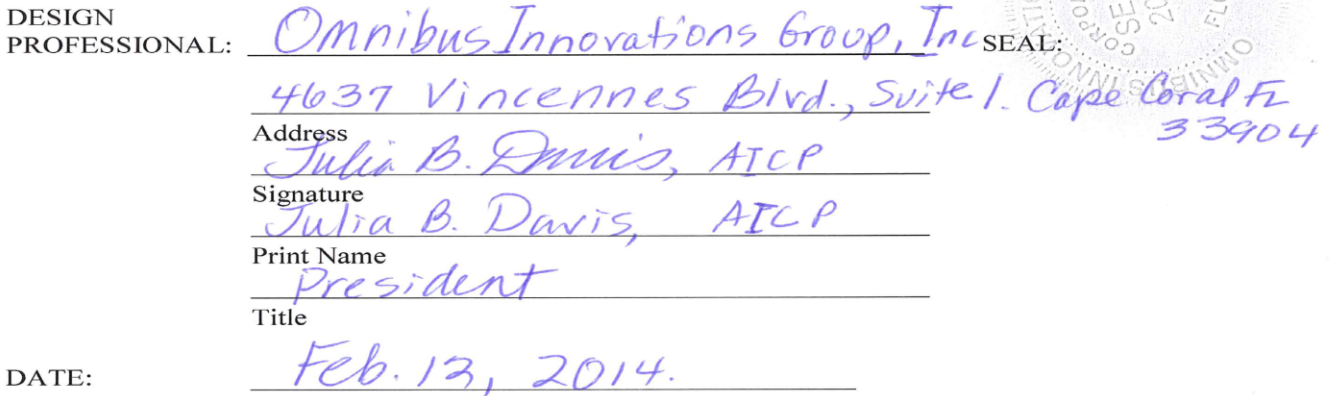 DESIGN
PROFESSIONAL: Omnibus Innovations Group, Inc SEAL:
4637 Vincennes Blvd., Suite 1. Cape Coral FL
33904
Address
Julia B. Davis, AICP
Signature
Julia B. Davis, AICP
Print Name
President
Title
DATE: Feb. 12, 2014.